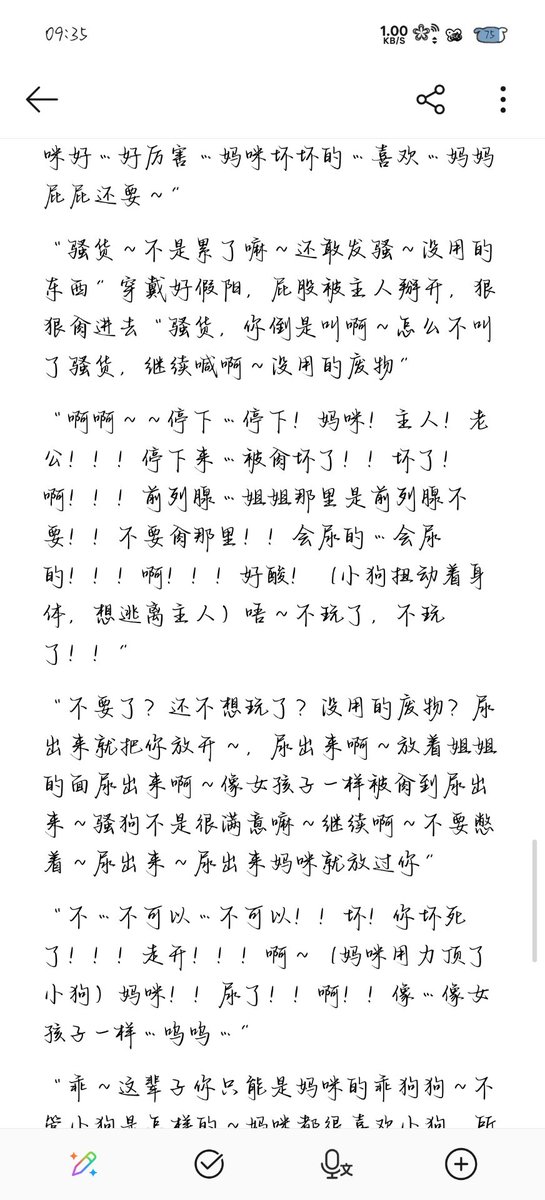 09:35
1.00
KB/S
75
咪好…好厉害…妈咪坏坏的…喜欢…妈妈
屁屁还要～”
“骚货～不是累了嘛～还敢发骚～没用的
东西”穿戴好假阳，屁股被主人掰开，狠
狠肏进去“骚货，你倒是叫啊～怎么不叫
了骚货，继续喊啊～没用的废物”
“啊啊～～停下…停下！妈咪！主人！老
公！！！停下来…被肏坏了！！坏了！
啊！！！前列腺…姐姐那里是前列腺不
要！！不要肏那里！！会尿的…会尿
的！！！啊！！！好酸！（小狗扭动着身
体，想逃离主人）唔～不玩了，不玩
了！！”
“不要了？还不想玩了？没用的废物？尿
出来就把你放开～，尿出来啊～放着姐姐
的面尿出来啊～像女孩子一样被肏到尿出
来～骚狗不是很满意嘛～继续啊～不要憋
着～尿出来～尿出来妈咪就放过你”
“不…不可以…不可以！！坏！你坏死
了！！！走开！！！啊～（妈咪用力顶了
小狗）妈咪！！尿了！！啊！！像…像女
孩子一样…呜呜…”
“乖～这辈子你只能是妈咪的乖狗狗～不
管小狗是怎样的～妈咪都很喜欢小狗，所
文